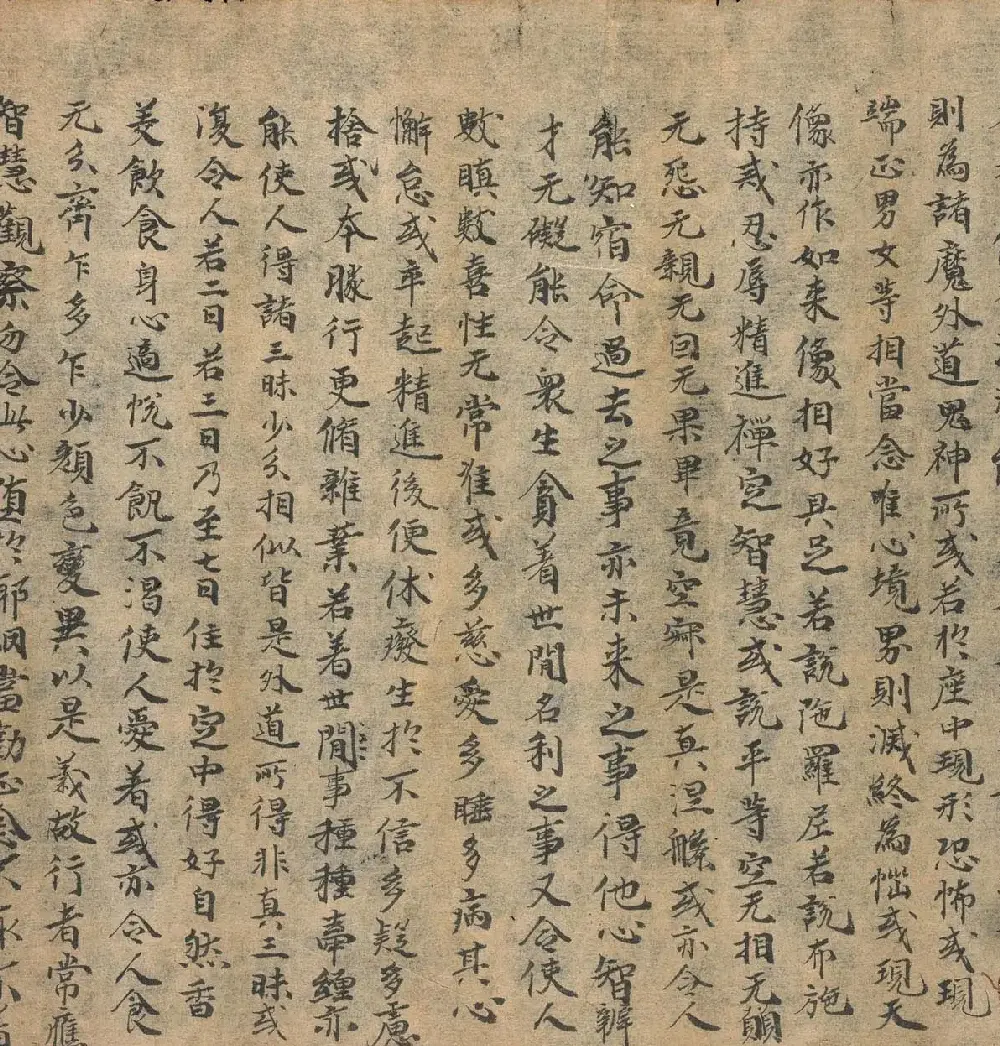 則為諸魔外道鬼神所或若於座中現形恐怖或現
端正男女等相當念唯心境界則滅終為惱或現天
像亦作如来像相好具足若說陁羅尼若說布施
持戒忍辱精進禪定智慧或說平等空无相无願
无怨无親无因无果畢竟空寂是真涅槃或亦令人
能知宿命過去之事亦未来之事得他心智辯
才无礙能令衆生貪着世間名利之事又令使人
數瞋數喜性无常准或多慈愛多睡多病其心
懈怠或卒起精進後便休癈生於不信多疑多慮
捨或本勝行更脩雜業若着世間事種種牽纏亦
能使人得諸三昧少分相似皆是外道所得非真三昧或
復令人若二日若三日乃至七日住於定中得好自然香
美飲食身心適悅不飢不渴使人愛着或亦令人食
无分齊乍多乍少顏色變異以是義故行者常應
智慧觀察勿令此心墮於邪網當勤正念不取不